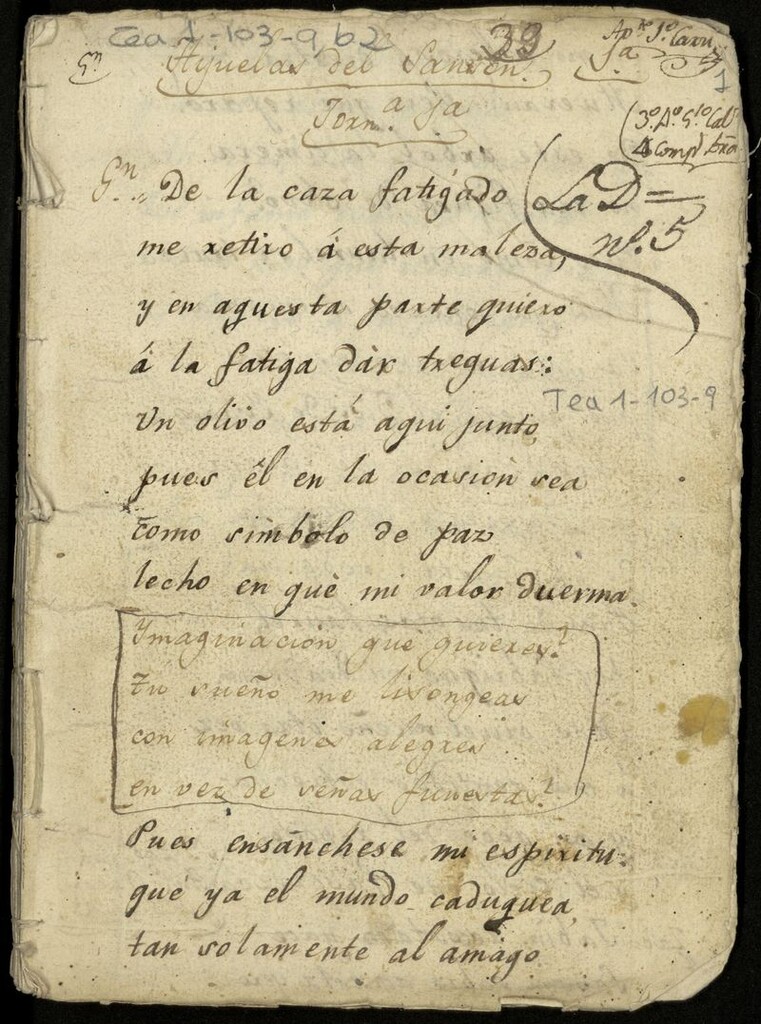 Tea 1-103-9 b2
39
Ap.te 1.o
Ja
1
Sn
Ajuelas del Sanson.
Jorn.a 1a
(3.o A.o G.to Cal
4 Comp.
La D=
n.o 5
Sn.. De la caza fatigado
me retiro á esta maleza,
y en aquesta parte quiero
á la fatiga dár treguas:
Un olivo está aqui junto,
pues él en la ocasion sea
como simbolo de paz
lecho en que mi valor duerma.
Tea 1-103-9
Ymaginacion que quieres?
tu sueño me lisongeas
con imagenes alegres
en vez de señas funestas?
Pues ensánchese mi espiritu.
que ya el mundo caduquea
tan solamente al amago